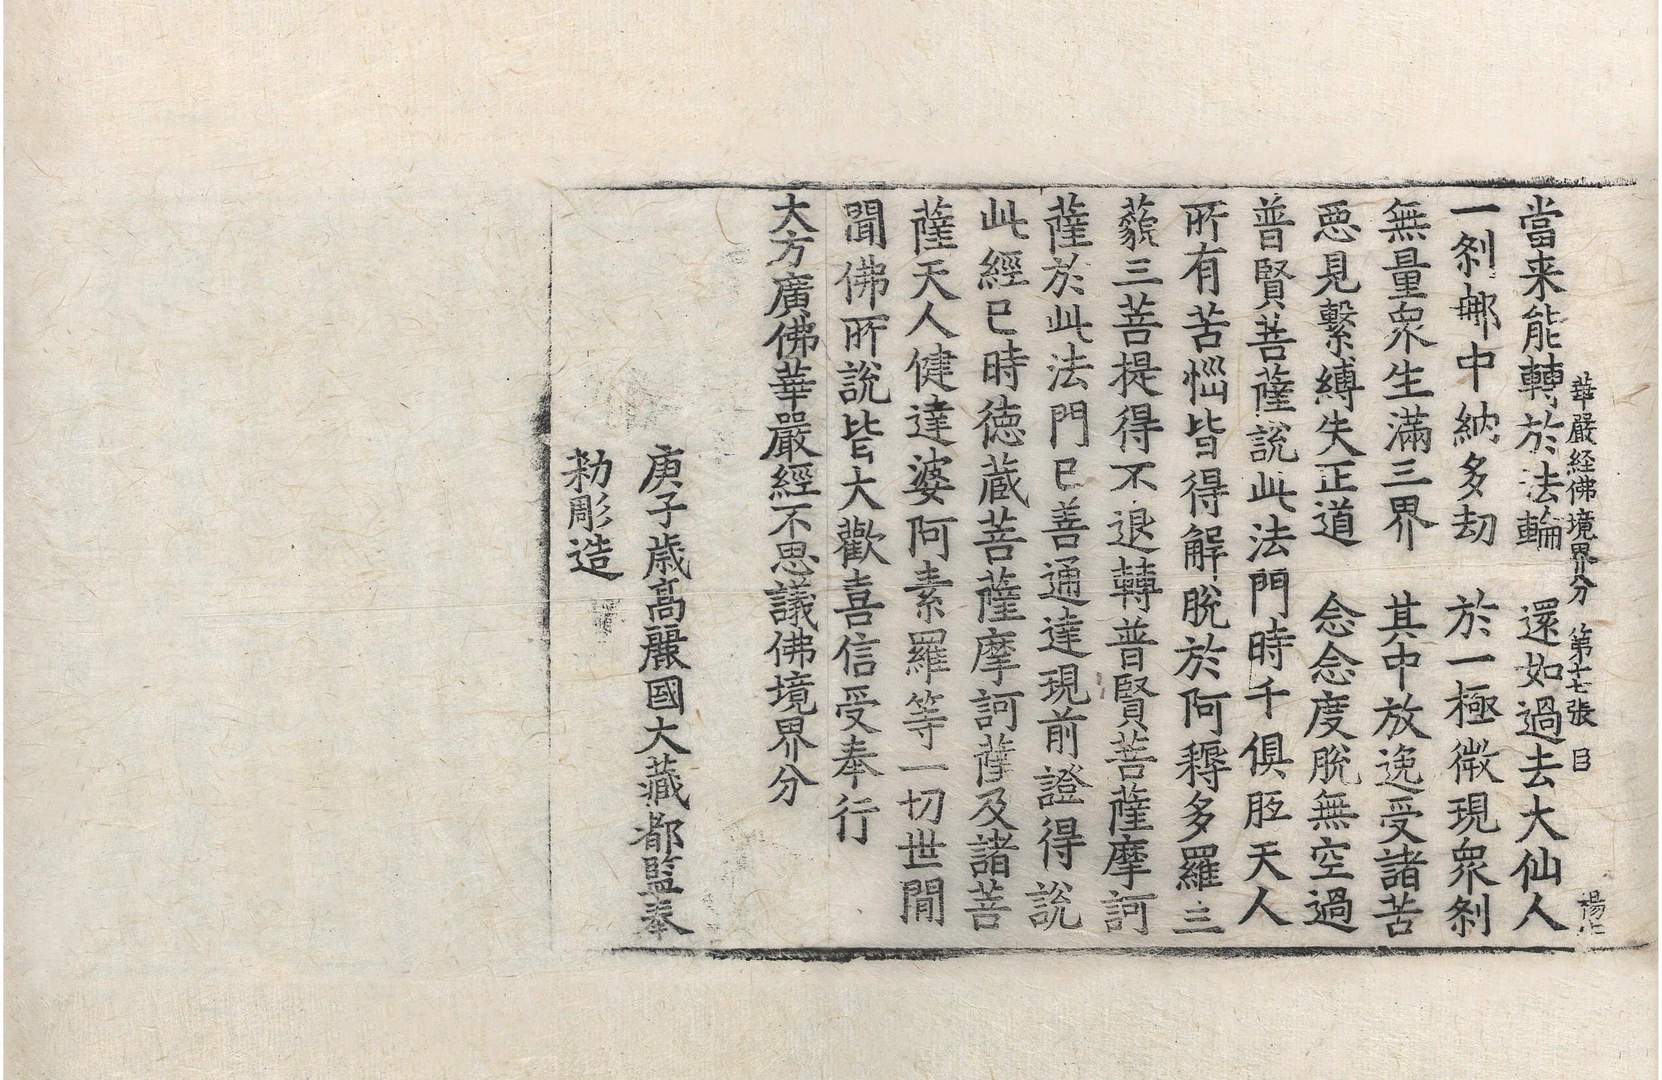 華嚴経佛境界分 第十七張 目 楊仁
當来能轉於法輪 還如過去大仙人
一刹𨙻中納多劫 於一極微現衆刹
無量衆生滿三界 其中放逸受諸苦
惡見繫縛失正道 念念度脫無空過
普賢菩薩說此法門時千俱胝天人
所有苦惱皆得解脫於阿耨多羅三
藐三菩提得不退轉普賢菩薩摩訶
薩於此法門已善通達現前證得說
此經已時德蔵菩薩摩訶薩及諸菩
薩天人健達婆阿素羅等一切世閒
聞佛所說皆大歡喜信受奉行
大方廣佛華嚴經不思議佛境界分
庚子歲高麗國大藏都監奉
勑彫造